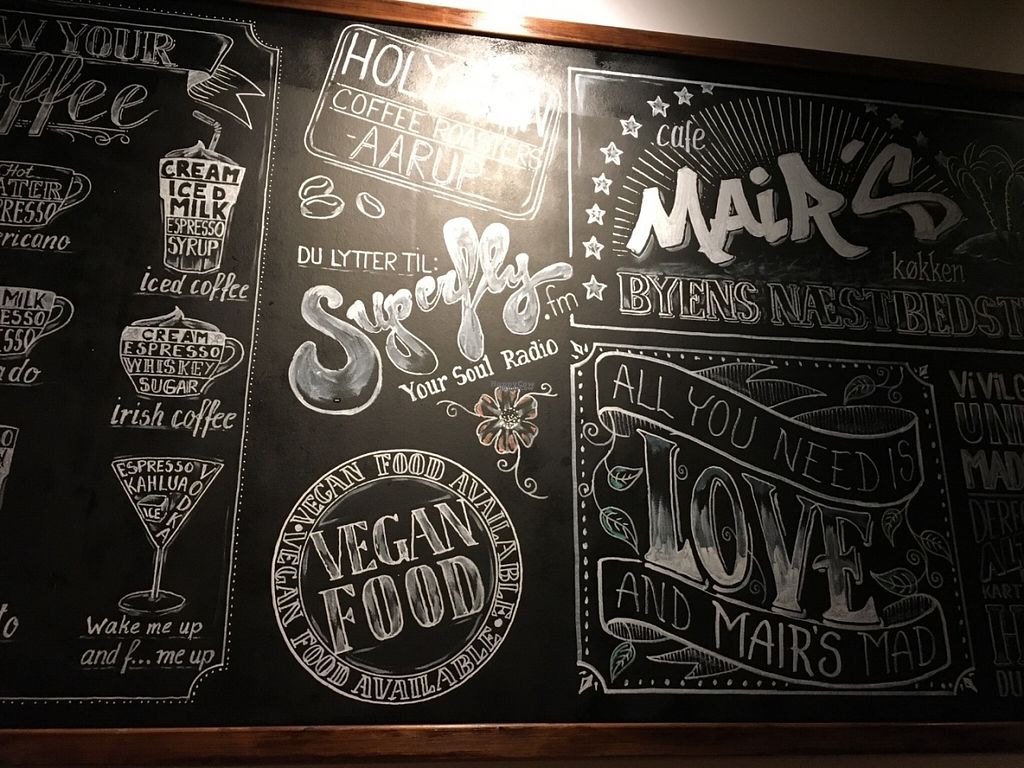 W YOUR
offee
Hot
WATER
ESPRESSO
ericano
MILK
ado
CREAM
ICED
MILK
ESPRESSO
SYRUP
iced coffee
CREAM
ESPRESSO
WHISKEY
SUGAR
irish coffee
ESPRESSO
KAHLUA
VODKA
ICE
Wake me up
and f... me up
HOLY
COFFEE ROASTERS
-AARUP
DU LYTTER TIL:
Superfly
.fm
Your Soul Radio
VEGAN FOOD AVAILABLE
VEGAN
FOOD
VEGAN FOOD AVAILABLE
cafe
MAiR'S
køkken
BYENS NÆSTBEDST
ALL YOU NEED iS
LOVE
AND MAIR'S MAD
Vi ViL
UN
MAD
DERF
ALT
KART
H
DU